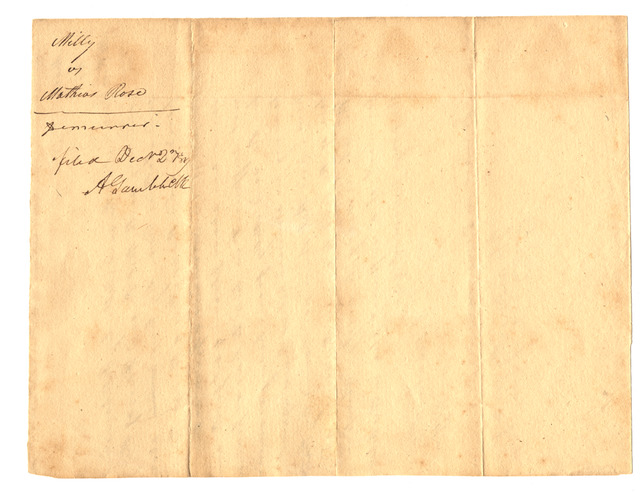 Milly
vs
Mathias Rose
Demurrer.
filed Decr 2nd
A Gamble Clk